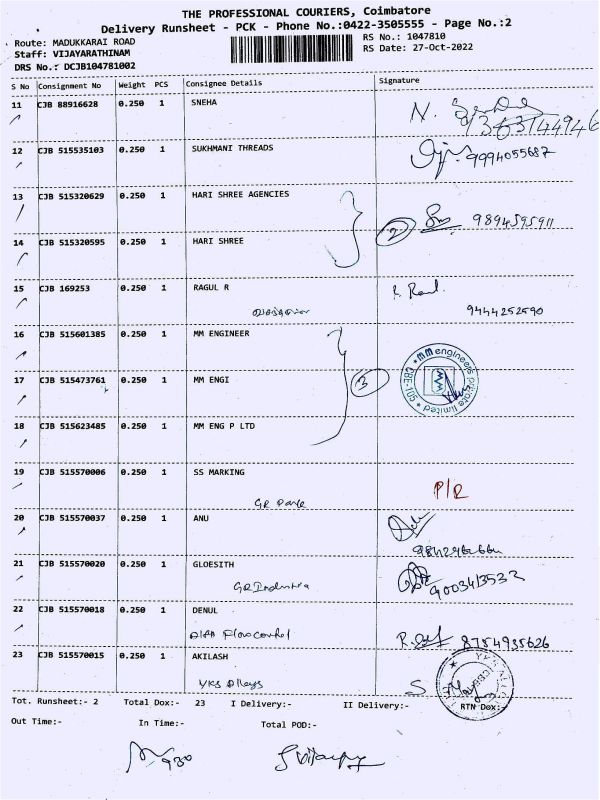 THE PROFESSIONAL COURIERS, Coimbatore
Delivery Runsheet - PCK - Phone No.:0422-3505555 - Page No.:2
Route: MADUKKARAI ROAD
RS No.: 1047810
Staff: VIJAYARATHINAM
RS Date: 27-Oct-2022
DRS No.: DCJB104781002
S No Consignment No Weight PCS Consignee Details Signature
11 CJB 88916628 0.250 1 SNEHA
N.
12 CJB 515535103 0.250 1 SUKHMANI THREADS
9994055687
13 CJB 515320629 0.250 1 HARI SHREE AGENCIES
2 9894595911
14 CJB 515320595 0.250 1 HARI SHREE
15 CJB 169253 0.250 1 RAGUL R
9444252590
16 CJB 515601385 0.250 1 MM ENGINEER
17 CJB 515473761 0.250 1 MM ENGI
3
MM engineers private limited
18 CJB 515623485 0.250 1 MM ENG P LTD
19 CJB 515570006 0.250 1 SS MARKING
P/R
20 CJB 515570037 0.250 1 ANU
21 CJB 515570020 0.250 1 GLOESITH
GR Industria 9003413532
22 CJB 515570018 0.250 1 DENUL
Flow control 8754935626
23 CJB 515570015 0.250 1 AKILASH
VKS Alloys
Tot. Runsheet:- 2 Total Dox:- 23 I Delivery:- II Delivery:- RTN Dox:-
Out Time:- In Time:- Total POD:-
930